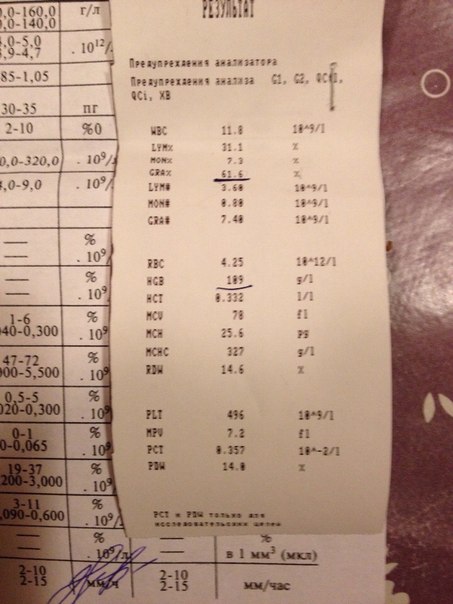 РЕЗУЛЬТАТ
Предупреждения анализатора
Предупреждения анализа G1, G2,
QCi, XB
WBC 11.8 10^9/l
LYM% 31.1 %
MON% 7.3 %
GRA% 61.6 %
LYM# 3.60 10^9/l
MON# 0.80 10^9/l
GRA# 7.40 10^9/l
RBC 4.25 10^12/l
HGB 109 g/l
HCT 0.332 l/l
MCV 78 fl
MCH 25.6 pg
MCHC 327 g/l
RDW 14.6 %
PLT 496 10^9/l
MPV 7.2 fl
PCT 0.357 10^-2/l
PDW 14.0 %
PCT и PDW только для
исследовательских целей
0,0-160,0 г/л
0,0-140,0
,0-5,0 . 10¹²/
,9-4,7
85-1,05
30-35 пг
2-10 %0
0,0-320,0 . 10⁹/
,0-9,0 . 10⁹/
— %
— . 10⁹
— %
— . 10⁹
1-6 %
040-0,300 . 10⁹
47-72 %
000-5,500 . 10⁹
0,5-5 %
020-0,300 . 10⁹
0-1 %
0-0,065 . 10⁹
19-37 %
200-3,000 . 10⁹
3-11 %
,090-0,600 . 10⁹
— % —
— . 10⁹/л — в 1 мм³ (мкл)
2-10 мм/ч 2-10 мм/час
2-15 2-15